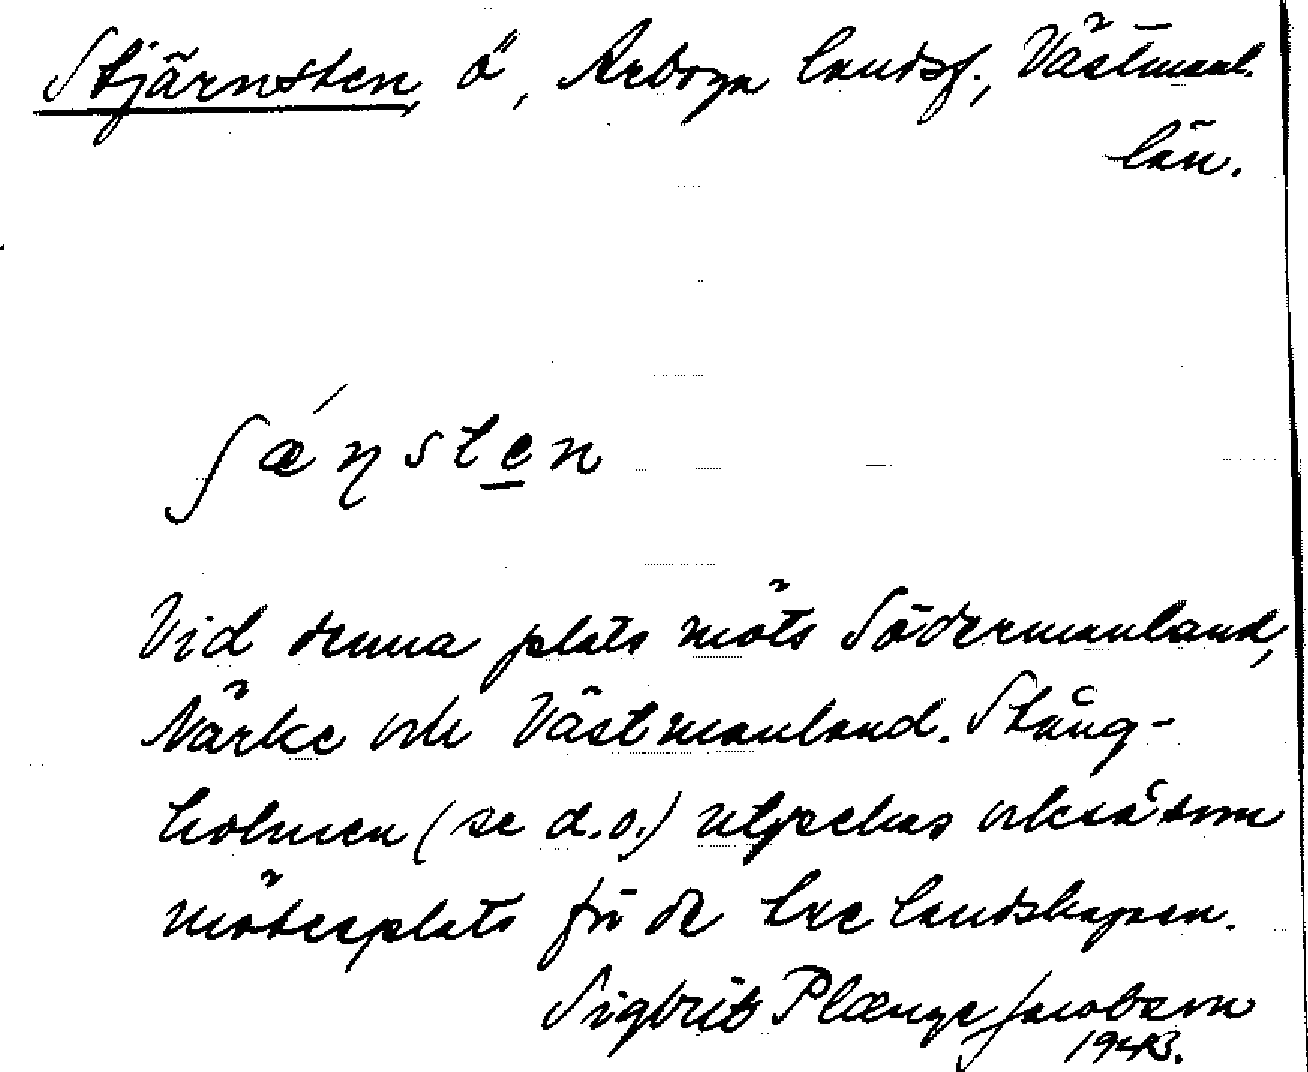 Stjärnsten, ö, Arboga landsf., Västmanl.
län.
ʃæ´ɳsten
Vid denna plats möts Södermanland,
Närke och Västmanland. Stång-
holmen (se d.o.) utpekas också som
mötesplats för de tre landskapen.
Sigbrit Plænge Jacobson
1943.